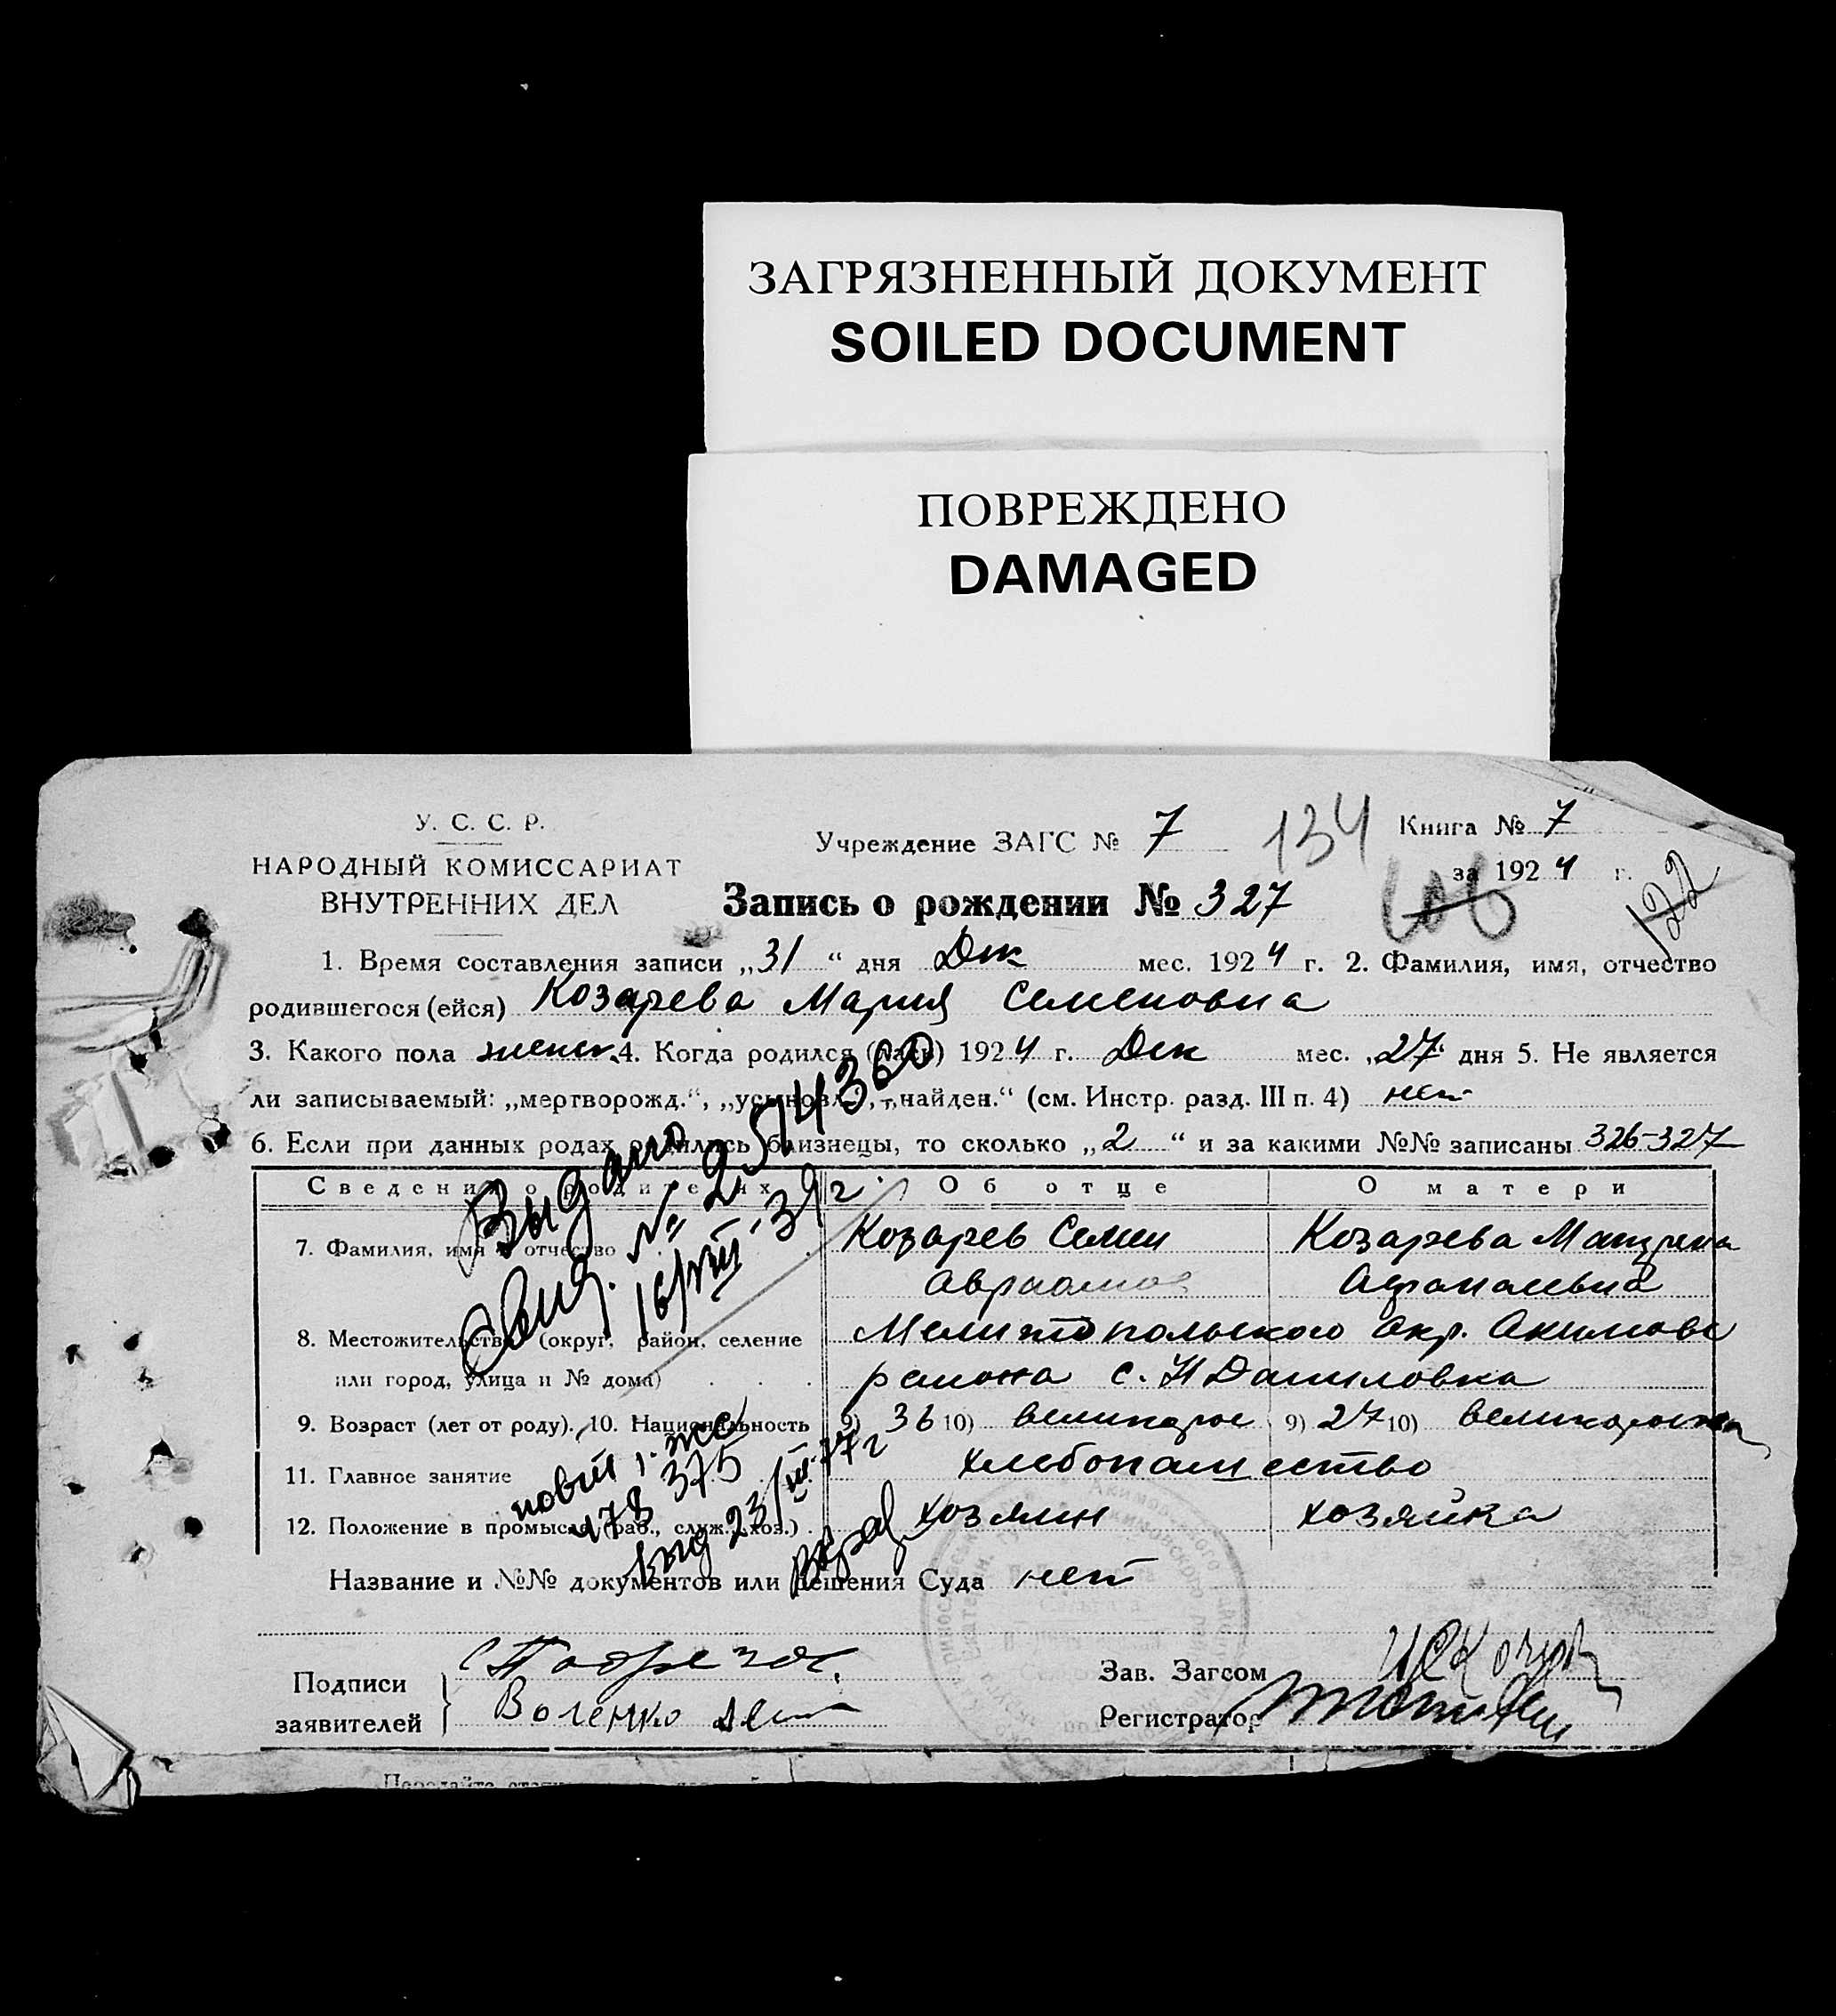 ЗАГРЯЗНЕННЫЙ ДОКУМЕНТ
SOILED DOCUMENT
ПОВРЕЖДЕНО
DAMAGED
У. С. С. Р.
НАРОДНЫЙ КОМИССАРИАТ
ВНУТРЕННИХ ДЕЛ
Учреждение ЗАГС № 7
134
Книга № 7
за 1924 г.
106
122
Запись о рождении № 327
1. Время составления записи „31“ дня Дек мес. 1924 г. 2. Фамилия, имя, отчество
родившегося (ейся) Козарева Мария Семеновна
3. Какого пола женск. 4. Когда родился (лась) 1924 г. Дек мес. „27“ дня 5. Не является
ли записываемый: „мертворожд.“, „усыновл.“, „найден.“ (см. Инстр. разд. III п. 4) нет
6. Если при данных родах родились близнецы, то сколько „2“ и за какими №№ записаны 326-327
Сведения о родителях Об отце О матери
7. Фамилия, имя и отчество Козарев Семен Козарева Матрена
Авраамов Афанасьевна
8. Местожительство (округ, район, селение Мелитопольского окр. Акимовс
или город, улица и № дома) района с. Н Даниловка
9. Возраст (лет от роду). 10. Национальность 9) 36 10) великорос 9) 27 10) великоросска
11. Главное занятие хлебопашество
12. Положение в промысле (раб., служ., хоз.) хозяин хозяйка
Название и №№ документов или решения Суда нет
Выдано
Свид. № 2514360
16/VIII-39 г.
478 375
выд 23/III-77 г
Подписи
заявителей
Зав. Загсом
Регистратор